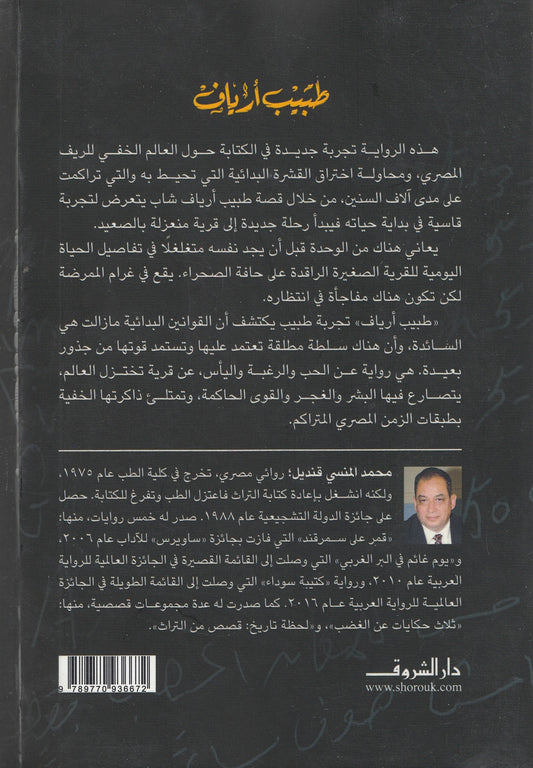 طبيب أرياف
هذه الرواية تجربة جديدة في الكتابة حول العالم الخفي للريف
المصري، ومحاولة اختراق القشرة البدائية التي تحيط به والتي تراكمت
على مدى آلاف السنين، من خلال قصة طبيب أرياف شاب يتعرض لتجربة
قاسية في بداية حياته فيبدأ رحلة جديدة إلى قرية منعزلة بالصعيد.
يعاني هناك من الوحدة قبل أن يجد نفسه متغلغلًا في تفاصيل الحياة
اليومية للقرية الصغيرة الراقدة على حافة الصحراء. يقع في غرام الممرضة
لكن تكون هناك مفاجأة في انتظاره.
«طبيب أرياف» تجربة طبيب يكتشف أن القوانين البدائية مازالت هي
السائدة، وأن هناك سلطة مطلقة تعتمد عليها وتستمد قوتها من جذور
بعيدة. هي رواية عن الحب والرغبة واليأس، عن قرية تختزل العالم،
يتصارع فيها البشر والغجر والقوى الحاكمة، وتمتلئ ذاكرتها الخفية
بطبقات الزمن المصري المتراكم.
محمد المنسي قنديل؛ روائي مصري، تخرج في كلية الطب عام ١٩٧٥،
ولكنه انشغل بإعادة كتابة التراث فاعتزل الطب وتفرغ للكتابة. حصل
على جائزة الدولة التشجيعية عام ١٩٨٨. صدر له خمس روايات، منها:
«قمر على سمرقند» التي فازت بجائزة «ساويرس» للآداب عام ٢٠٠٦،
و«يوم غائم في البر الغربي» التي وصلت إلى القائمة القصيرة في الجائزة العالمية للرواية
العربية عام ٢٠١٠، ورواية «كتيبة سوداء» التي وصلت إلى القائمة الطويلة في الجائزة
العالمية للرواية العربية عام ٢٠١٦. كما صدرت له عدة مجموعات قصصية، منها:
«ثلاث حكايات عن الغضب»، و«لحظة تاريخ: قصص من التراث».
دار الشروق
www.shorouk.com
9 789770 936672